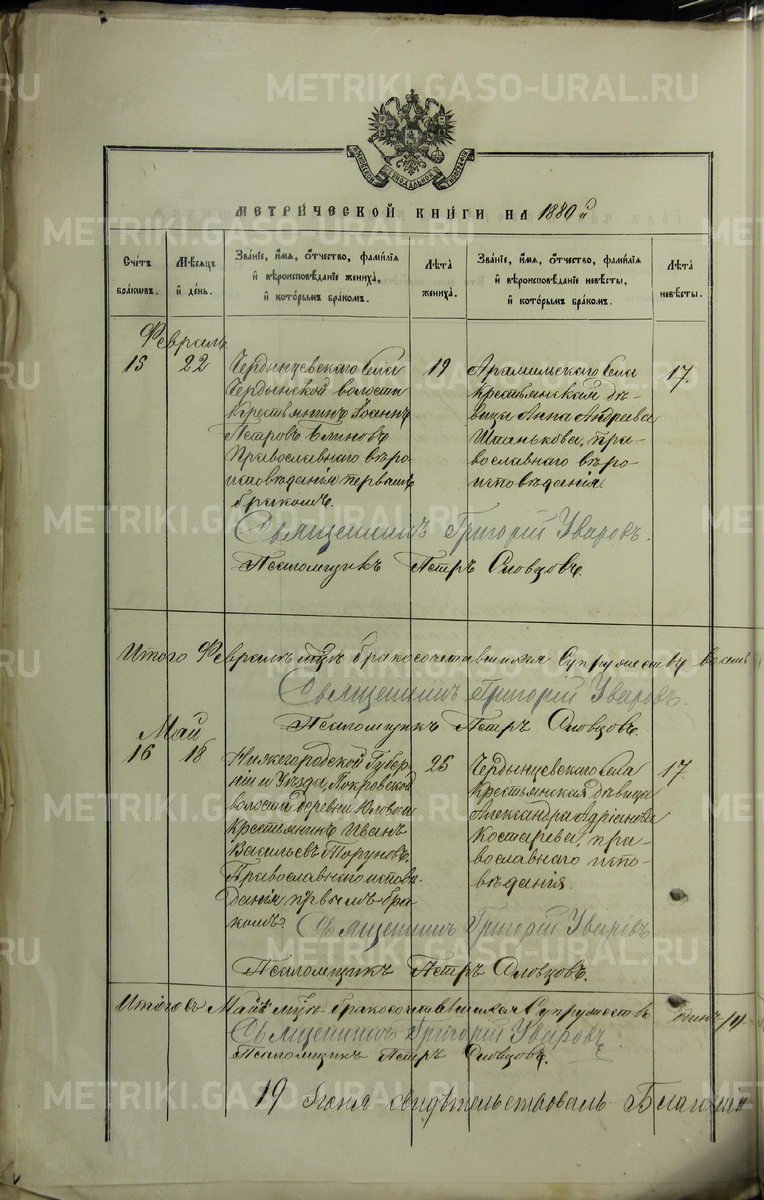 METRIKI.GASO-URAL.RU
МОСКОВСКОЙ СѴНОДАЛЬНОЙ ТИПОГРАФІИ
МЕТРИЧЕСКОЙ КНИГИ НА 1880 й
Счетъ браковъ.
Мѣсяцъ и день.
Званіе, имя, отчество, фамилія и вѣроисповѣданіе жениха, и которымъ бракомъ.
Лѣта жениха.
Званіе, имя, отчество, фамилія и вѣроисповѣданіе невѣсты, и которымъ бракомъ.
Лѣта невѣсты.
Февраль
15 22
Чердынцевскаго села
Чердынской волости
Крестьянинъ Іоаннъ
Петровъ Блиновъ
Православнаго вѣро-
исповѣданія первымъ
бракомъ.
19
Арамильскаго села
крестьянская дѣ-
вица Анна Андреева
Штанькова, пра-
вославнаго вѣро-
исповѣданія
17.
Священникъ Григорій Уваровъ.
Псаломщикъ Петръ Словцовъ.
Итого Февралѣ мцѣ бракосочетавшихся Супружествъ
Священникъ Григорій Уваровъ.
Псаломщикъ Петръ Словцовъ.
Май
16 18
Нижегородской Губер-
ніи и Уѣзда, Покровской
волости деревни
Крестьянинъ Иванъ
Васильевъ Торуновъ.
Православнаго исповѣ-
данія первымъ бра-
комъ.
25
Чердынцевскаго села
крестьянская дѣвица
Александра Адріанова
Костарева, пра-
вославнаго испо-
вѣданія.
17.
Священникъ Григорій Уваровъ
Псаломщикъ Петръ Словцовъ.
Итого въ Маѣ мцѣ бракосочетавшихся Супружествъ одинъ /1/
Священникъ Григорій Уваровъ
Псаломщикъ Петръ Словцовъ.
19 Іюня свидѣтельствовалъ Благочин